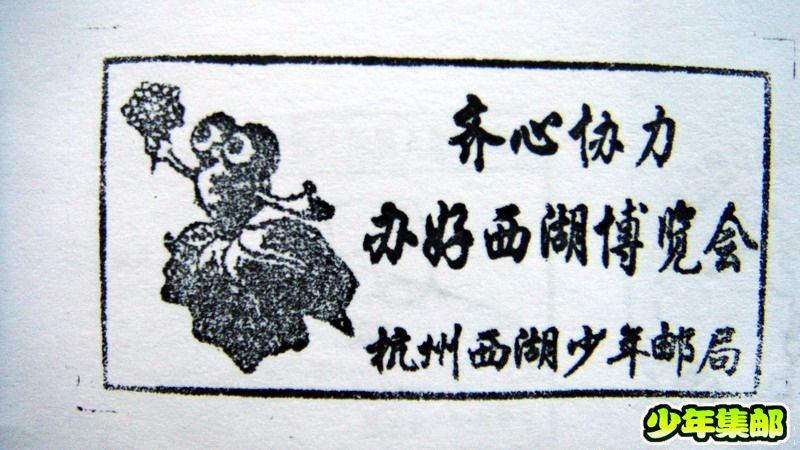 齐心协力
办好西湖博览会
杭州西湖少年邮局
少年集邮